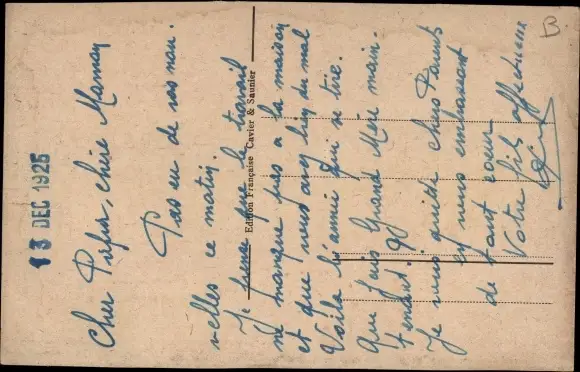 13 DEC 1925
Cher Pépée, chère Maman
Pas eu de vos nou-
velles ce matin.
Je pense que le travail
ne manque pas à la maison
et que vous avez bien du mal
Voilà l'année qui se tire.
Que fais Grand Mère main-
tenant.
Je vous quitte chers Parents
en vous embrassant
de tout coeur
Votre fils affectueux
Edition Française Cavier & Saunier
B